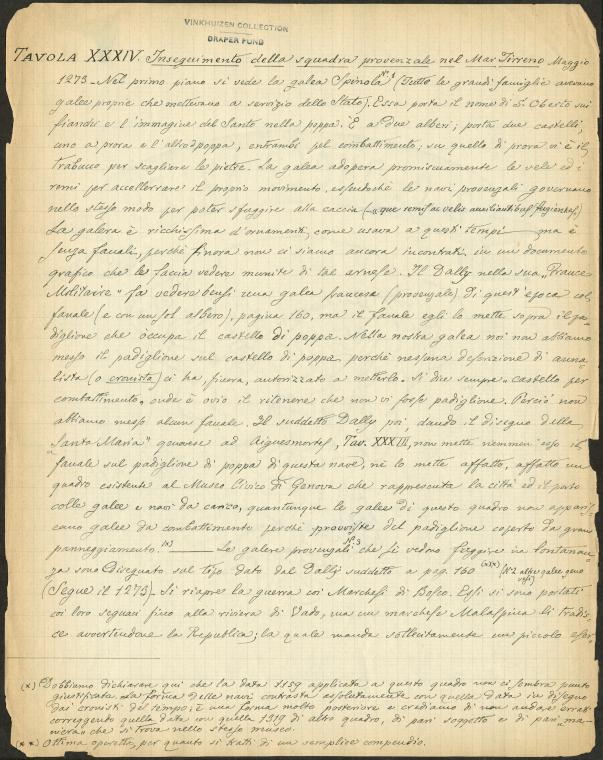 VINKHUIZEN COLLECTION
DRAPER FUND
TAVOLA XXXIV. Inseguimento della squadra provenzale nel Mar Tirreno Maggio
1273 – Nel primo piano si vede la galea Spinola N.º 1 (Tutte le grandi famiglie avevano
galee proprie che mettevano a servizio dello Stato). Essa porta il nome di S. Oberto sui
fianchi e l'immagine del Santo nella poppa. È a due alberi; porta due castelli,
uno a prora e l'altro a poppa, entrambi pel combattimento; su quello di prora vi è il
trabucco per scagliare le pietre. La galea adopera promiscuamente le vele ed i
remi per accellerare il proprio movimento, essendochè le navi provenzali governavano
nello stesso modo per poter sfuggire alla caccia (– que remis ac velis auxiliantibus fugientes).
La galera è ricchissima d'ornamenti, come usava a questi tempi – ma è
senza fanali, perchè finora non ci siamo ancora incontrati in un documento
grafico che le faccia vedere munite di tale arnese. Il Dally nella sua „France
Militaire" fa vedere bensì una galea francese (provenzale) di quest'epoca col
fanale (e con un sol albero), pagina 160, ma il fanale egli lo mette sopra il pa-
diglione che occupa il castello di poppa. Nella nostra galea noi non abbiamo
messo il padiglione sul castello di poppa perchè nessuna descrizione di anna-
lista (o cronista) ci ha, finora, autorizzato a metterlo. Si dice sempre castello per
combattimento, onde è ovio il ritenere che non vi fosse padiglione. Perciò non
abbiamo messo alcun fanale. Il suddetto Dally poi, dando il disegno della
„Santa Maria" genovese ad Aiguesmortes, Tav. XXXIII, non mette nemmen esso il
fanale sul padiglione di poppa di questa nave, nè lo mette affatto, affatto un
quadro esistente al Museo Civico di Genova che rappresenta la città ed il porto
colle galee e navi da carico, quantunque le galee di questo quadro non appari-
cano galee da combattimento perchè provviste del padiglione coperto da gran
panneggiamento. (x) — Le galere provenzali N.º 3 che si vedono fuggire in lontanan-
za sono disegnate sul tipo dato dal Dally suddetto a pag. 160 (xx) (N.º 2 altre galee geno-
vesi)
(Segue il 1273) – Si riapre la guerra coi Marchesi di Bosco. Essi si sono portati
coi loro seguaci fino alla riviera di Vado, ma un marchese Malaspina li tradis-
ce avvertendone la Republica; la quale manda sollecitamente un piccolo eser-
(x) Dobbiamo dichiarare qui che la data 1159 applicata a questo quadro non ci sembra punto
giustificata. La forma delle navi contrasta assolutamente con quella data in disegno
dai cronisti del tempo; è una forma molto posteriore e crediamo di non andare errati
correggendo quella data con quella 1319 di altro quadro, di pari soggetto e di pari ma-
niera che si trova nello stesso museo.
(xx) Ottima operetta, per quanto si tratti di un semplice compendio.